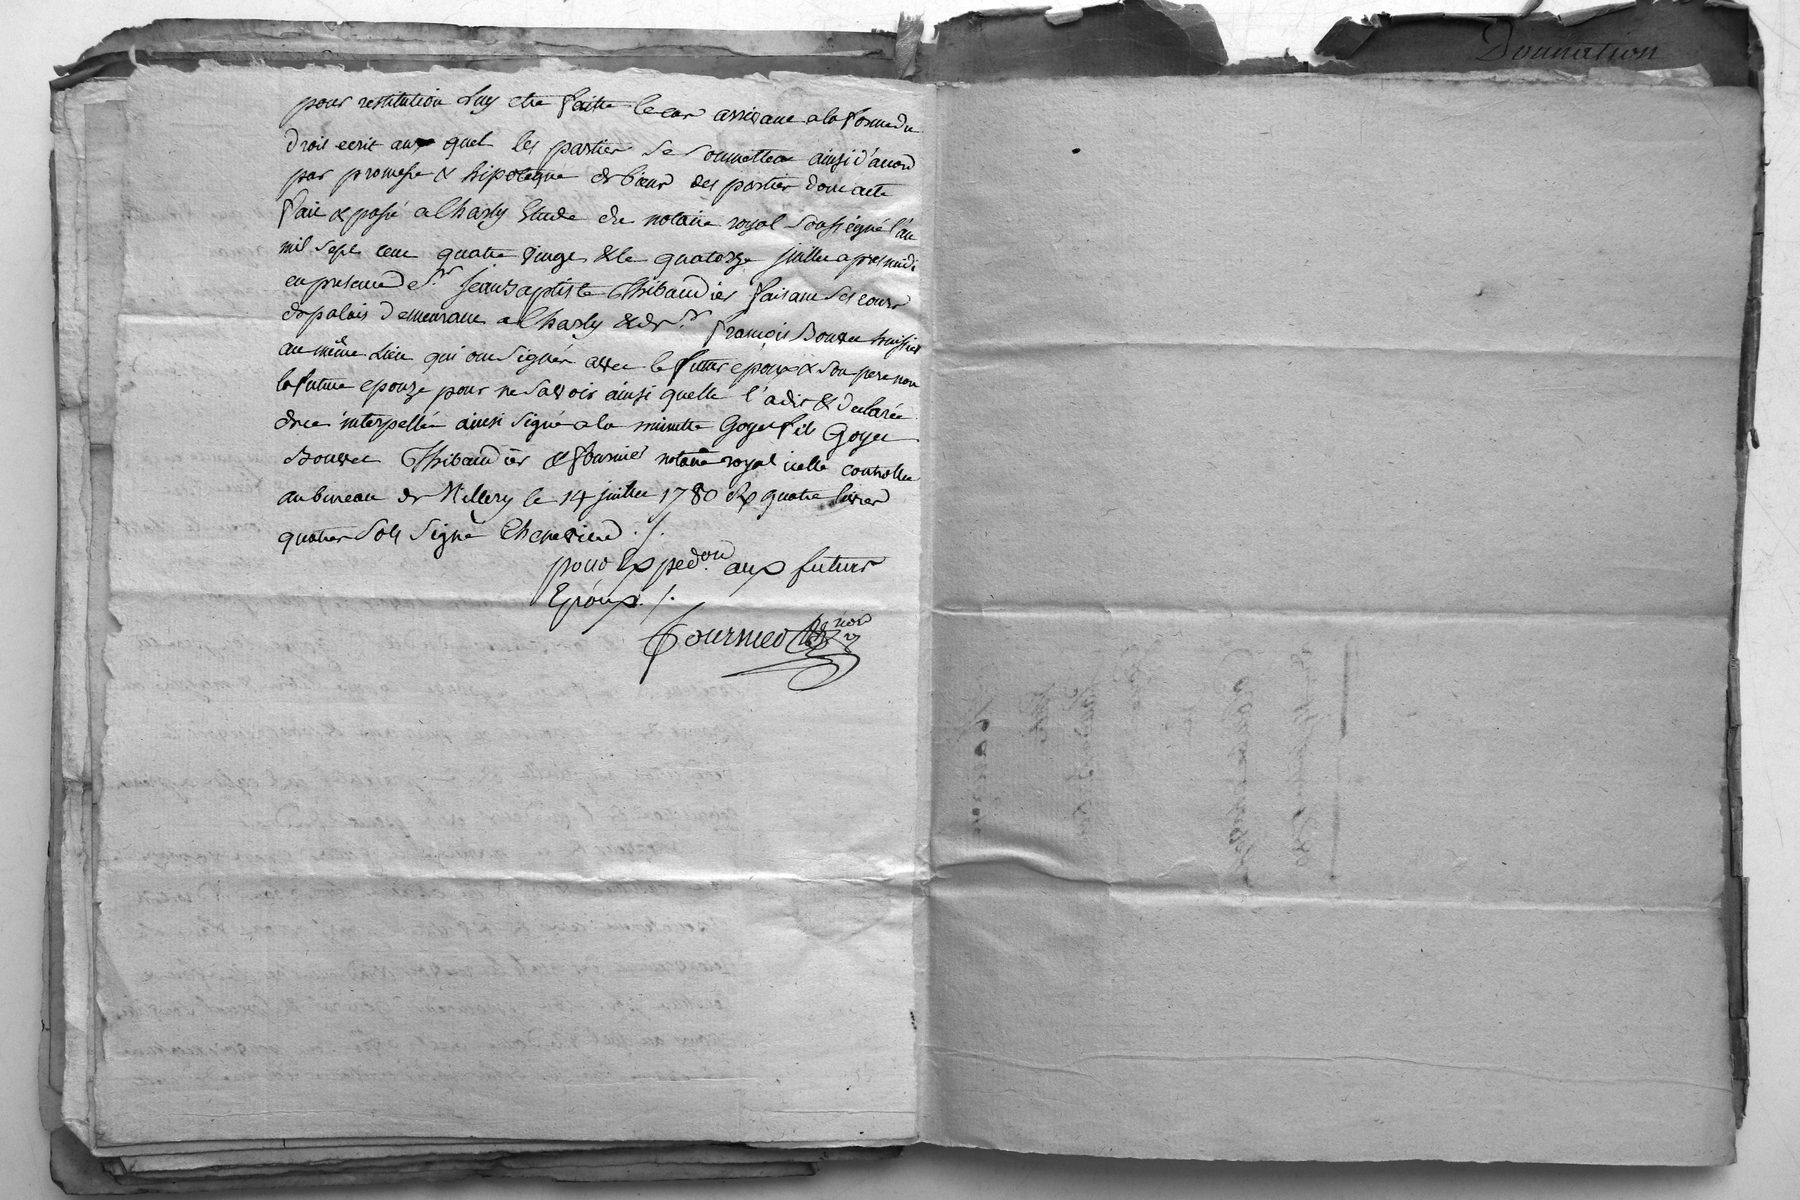 Donnation
pour restitution Luy etre faitte le cas arrivant a la forme du
droit ecrit aux quel les parties se soumettent ainsi d'accord
par promesse & hipoteque de biens des parties dont acte
fait & passé a Charly Etude du notaire royal soussigné l'an
mil sept cent quatre vingt & le quatorze juillet apres midi
en presence de Sr. Jean Baptiste Thibaudier faisant ses cours
de palais demeurant a Charly & de Sr. françois Bouvet huissier
au même Lieu qui ont signés avec le futur epoux & son pere non
la future epouze pour ne savoir ainsi quelle l'a dit & declarée
de ce interpellée ainsi signé a la minutte Goyet fils Goyet
Bouvet Thibaudier & fournier notaire royal icelle controllée
au bureau de Millery le 14 juillet 1780 quatre livres
quatres sols signé
pour Expedon. aux futurs
Epoux ./.
fournier